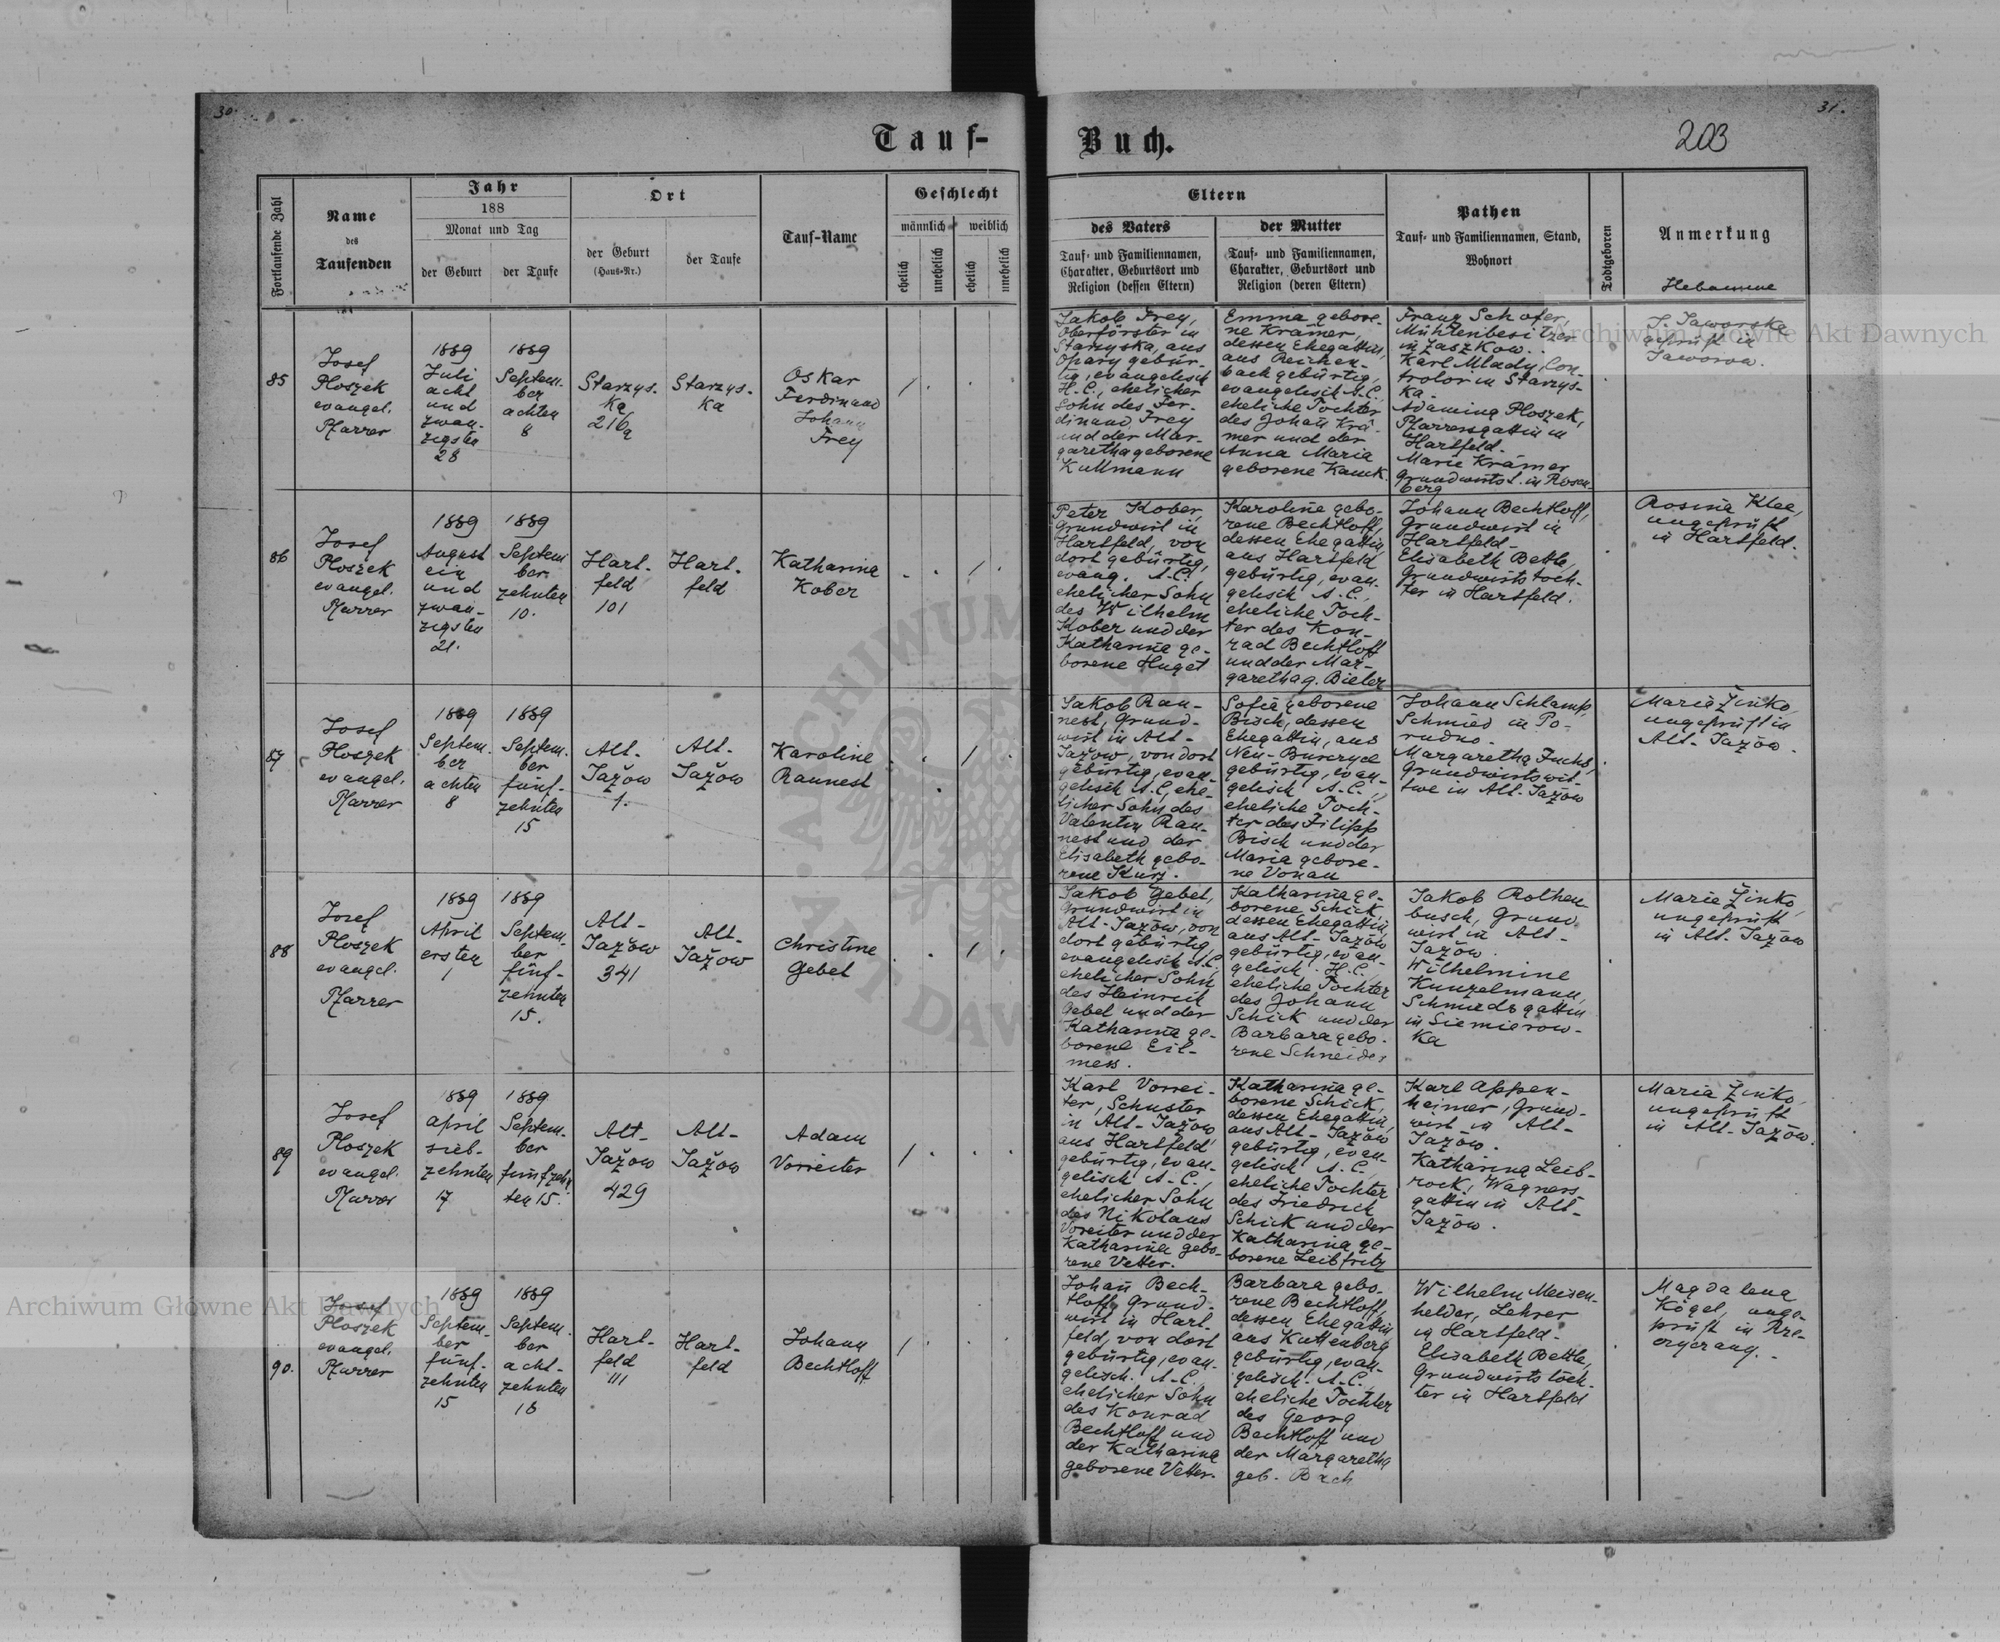 30.
31.
Tauf-
Buch.
203
Fortlaufende Zahl
Name
des
Taufenden
Jahr
188
Monat und Tag
der Geburt
der Taufe
Ort
der Geburt
(Haus-Nr.)
der Taufe
Tauf-Name
Geschlecht
männlich
weiblich
ehelich
unehelich
ehelich
unehelich
Eltern
des Vaters
Tauf- und Familiennamen,
Charakter, Geburtsort und
Religion (dessen Eltern)
der Mutter
Tauf- und Familiennamen,
Charakter, Geburtsort und
Religion (deren Eltern)
Pathen
Tauf- und Familiennamen, Stand,
Wohnort
Todtgeboren
Anmerkung
Hebamme
85
Josef
Ploszek
evangel.
Pfarrer
1889
Juli
acht
und
zwan-
zigsten
28
1889
Septem-
ber
achten
8
Starzys-
ka
216a
Starzys-
ka
Oskar
Ferdinand
Johann
Frey
/
Jakob Frey,
Oberförster in
Starzyska, aus
Opary gebür-
tig, evangelisch
H. C., ehelicher
Sohn des Fer-
dinand Frey
und der Mar-
garetha geborene
Kullmann
Emma gebore-
ne Krämer,
dessen Ehegattin,
aus Reichen-
bach gebürtig,
evangelisch A. C.,
eheliche Tochter
des Johañ Krä-
mer und der
Anna Maria
geborene Kauck
Franz Schofer,
Mühlenbesitzer
in Zaszkow.
Karl Mlady, Con-
trolor in Starzys-
ka.
Adamina Ploszek,
Pfarrersgattin in
Hartfeld.
Marie Krämer
Grundwirts t. in Rosen
berg
J. Jaworska
geprüft in
Jaworow.
86
Josef
Ploszek
evangel.
Pfarrer
1889
August
ein
und
zwan-
zigsten
21.
1889
Septem
ber
zehnten
10.
Hart-
feld
101
Hart-
feld
Katharina
Kober
/
Peter Kober,
Grundwirt in
Hartfeld, von
dort gebürtig,
evang. A. C.,
ehelicher Sohn
des Wilhelm
Kober und der
Katharina ge-
borene Huget
Karoline gebo-
rene Bechtloff,
dessen Ehegattin,
aus Hartfeld
gebürtig, evan-
gelisch A. C.,
eheliche Toch-
ter des Kon-
rad Bechtloff
und der Mar-
garetha g. Bieler
Johann Bechtloff,
Grundwirt in
Hartfeld.
Elisabeth Bettle,
Grundwirtstoch-
ter in Hartfeld.
Rosina Klee,
ungeprüft
in Hartfeld.
87
Josef
Ploszek
evangel.
Pfarrer
1889
Septem-
ber
achten
8
1889
Septem-
ber
fünf-
zehnten
15
Alt-
Jažow
1.
Alt-
Jažow
Karoline
Raunest
/
Jakob Rau-
nest, Grund-
wirt in Alt-
Jažow, von dort
gebürtig, evan-
gelisch A. C., ehe-
licher Sohn des
Valentin Rau-
nest und der
Elisabeth gebo-
rene Kurz.
Sofie geborene
Bisch, dessen
Ehegattin, aus
Neu-Bruszyce
gebürtig, evan-
gelisch A. C.,
eheliche Toch-
ter des Filipp
Bisch und der
Maria gebore-
ne Vonau
Johann Schlamp,
Schmied in Po-
rudno.
Margaretha Fuchs,
Grundwirtswit-
twe in Alt-Jažow
Maria Žinko,
ungeprüft in
Alt-Jažow.
88
Josef
Ploszek
evangel.
Pfarrer
1889
April
ersten
1
1889
Septem-
ber
fünf-
zehnten
15.
Alt-
Jažow
341
Alt-
Jažow
Christine
Gebel
/
Jakob Gebel,
Grundwirt in
Alt-Jažow, von
dort gebürtig,
evangelisch A. C.,
ehelicher Sohn
des Heinrich
Gebel und der
Katharina ge-
borene Eil-
mess.
Katharina ge-
borene Schick,
dessen Ehegattin,
aus Alt-Jažow
gebürtig, evan-
gelisch H. C.,
eheliche Tochter
des Johann
Schick und der
Barbara gebo-
rene Schneider
Jakob Rothen
busch, Grund-
wirt in Alt-
Jažow.
Wilhelmine
Kunzelmann,
Schmiedsgattin
in Siemierow-
ka
Marie Žinko,
ungeprüft
in Alt-Jažow
89
Josef
Ploszek
evangel.
Pfarrer
1889
April
sieb-
zehnten
17
1889
Septem-
ber
fünfzehn
ten 15.
Alt-
Jažow
429
Alt-
Jažow
Adam
Vorreiter
/
Karl Vorrei-
ter, Schuster
in Alt-Jažow
aus Hartfeld
gebürtig, evan-
gelisch A. C.,
ehelicher Sohn
des Nikolaus
Voreiter und der
Katharina gebo-
rene Vetter.
Katharina ge-
borene Schick,
dessen Ehegattin,
aus Alt-Jažow
gebürtig, evan-
gelisch A. C.
eheliche Tochter
des Friedrich
Schick und der
Katharina ge-
borene Leibfritz
Karl Appen-
heimer, Grund-
wirt in Alt-
Jažow.
Katharina Leib-
rock, Wagners
gattin in Alt-
Jažow.
Maria Žinko,
ungeprüft
in Alt-Jažow.
90.
Josef
Ploszek
evangel.
Pfarrer
1889
Septem-
ber
fünf-
zehnten
15
1889
Septem-
ber
acht-
zehnten
18
Hart-
feld
111
Hart-
feld
Johann
Bechtloff
/
Johañ Bech-
tloff, Grund-
wirt in Hart-
feld, von dort
gebürtig, evan-
gelisch. A. C.,
ehelicher Sohn
des Konrad
Bechtloff und
der Katharina
geborene Vetter.
Barbara gebo-
rene Bechtloff,
dessen Ehegattin
aus Kuttenberg
gebürtig, evan-
gelisch. A. C.
eheliche Tochter
des Georg
Bechtloff und
der Margaretha
geb. Bach
Wilhelm Meisen-
helder, Lehrer
in Hartfeld.
Elisabeth Bettle,
Grundwirtstoch-
ter in Hartfeld
Magdalena
Kögel, unge-
prüft in
Archiwum Główne Akt Dawnych
Archiwum Główne Akt Dawnych
ARCHIWUM
AKT DAWNYCH